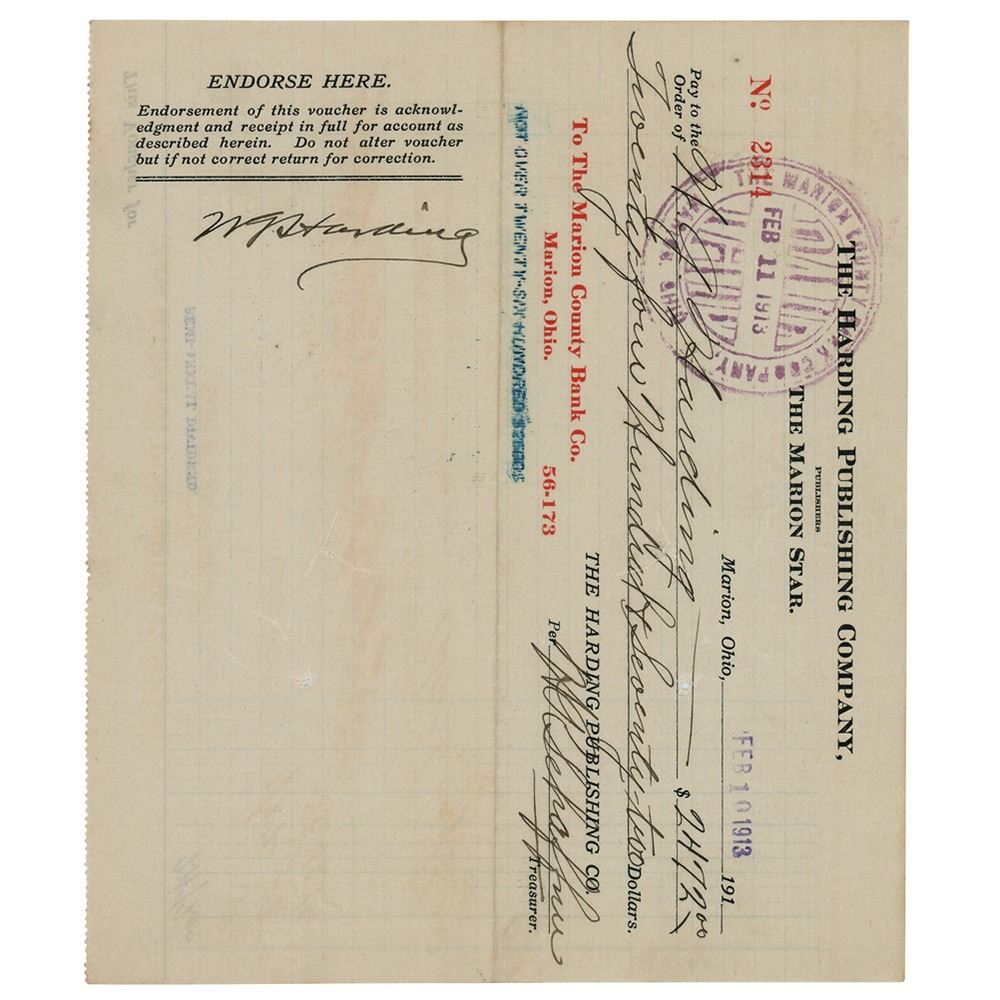 ENDORSE HERE.
Endorsement of this voucher is acknowl-
edgment and receipt in full for account as
described herein. Do not alter voucher
but if not correct return for correction.
WGHarding
THE HARDING PUBLISHING COMPANY,
PUBLISHERS
THE MARION STAR.
No 2314
THE MARION COUNTY BANK COMPANY,
FEB 11 1913
MARION, OHIO
Marion, Ohio, FEB 10 1913 191
Pay to the
Order of W. G. Harding $ 2472 00
Twenty-four Hundred & Seventy-two Dollars.
To The Marion County Bank Co.
Marion, Ohio. 56-173
NOT OVER TWENTY-SIX HUNDRED $2600$
THE HARDING PUBLISHING CO.
Per
Treasurer.